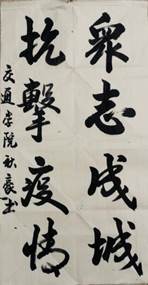 衆志成城
抗擊疫情
交通学院秋豪书